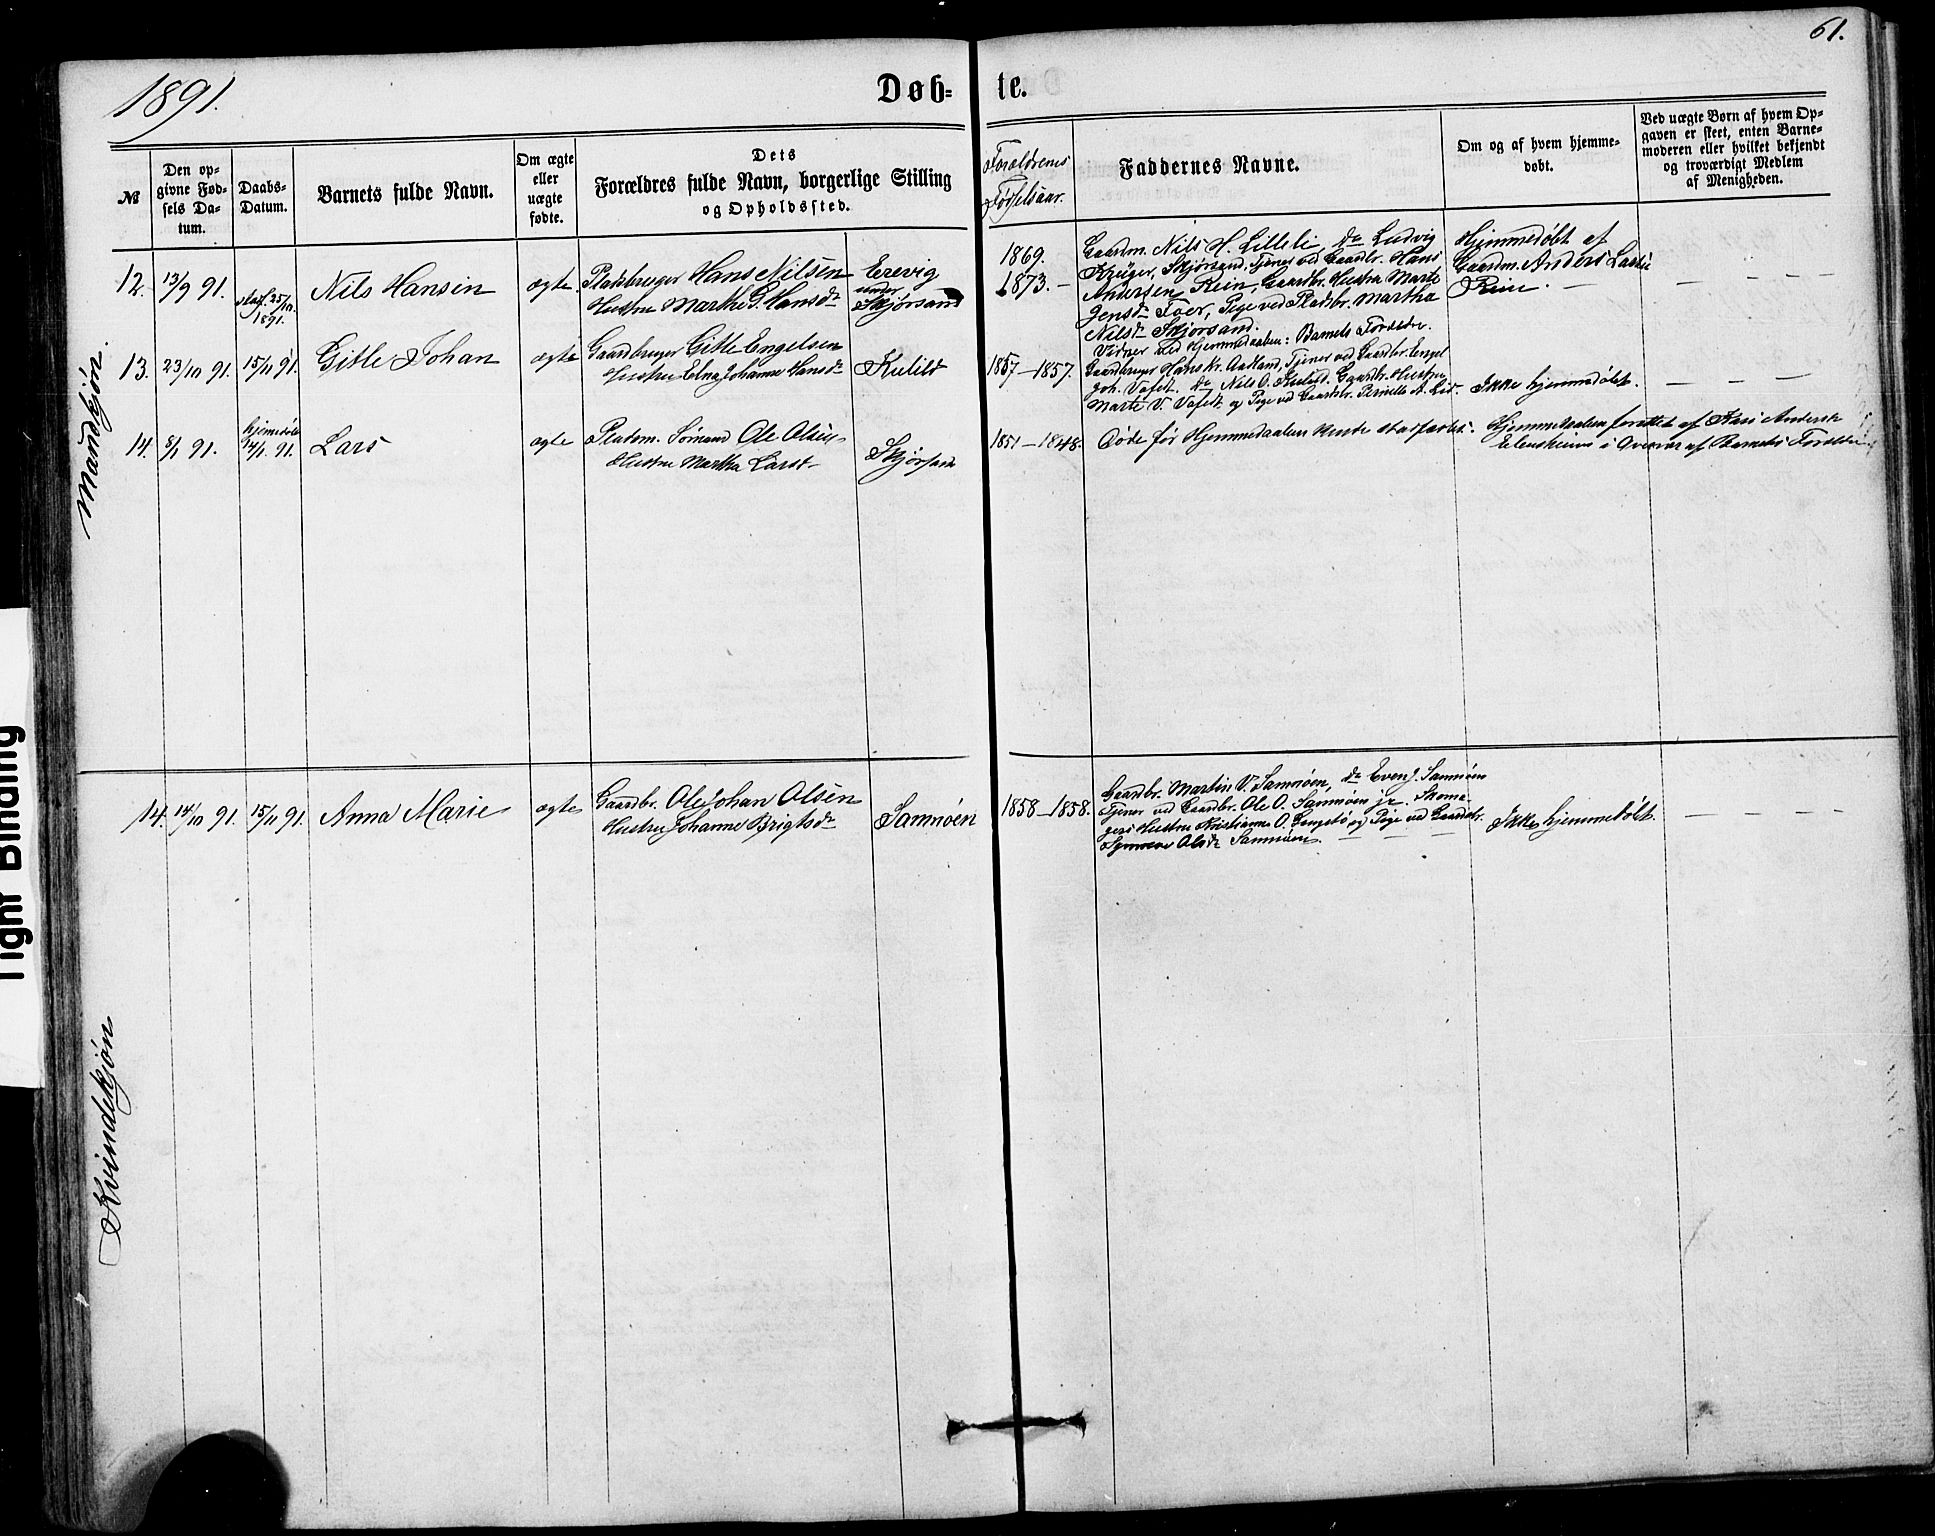 1891.
Døb-
te.
61.
№
Den op-
givne Fød-
sels Da-
tum.
Daabs-
Datum.
Barnets fulde Navn.
Om ægte
eller
uægte
fødte.
Dets
Forældres fulde Navn, borgerlige Stilling
og Opholdssted.
Forældrenes
Fødselsaar.
Faddernes Navne.
Om og af hvem hjemme-
døbt.
Ved uægte Børn af hvem Op-
gaven er skeet, enten Barne-
moderen eller hvilket bekjendt
og troværdigt Medlem
af Menigheden.
Mandkjøn.
12. 13/9 91.
staf. 25/10
1891.
Nils Hansen
ægte.
Pladsbruger Hans Nilsen
Hustru Marthe G. Hansdr
Erevig
under
Skjørsand
1869.
1873. —
Gaardm. Nils H. Lillebi, do Ludvig
Krüger, Skjørsand, Tjener ved Gaardbr. Hans
Andersen Rein, Gaardbr. Hustru Marte
Jensdr Toer, Pige ved Pladsbr. Martha
Nilsdr Skjørsand.
Vidner ved Hjemmedaaben: Barnets Forældre.
Hjemmedøbt af
Gaardm. Anders
Rein. —
— — — —
13. 23/10 91. 15/11 91.
Gitle Johan
ægte
Gaardbruger Gitle Engelsen
Hustru Elna Johanne Hansdr
Kulild
1857—1857.
Gaardbruger Hans Kr. Aadland, Tjener ved Gaardbr. Engel
Joh. Vaset. do Nils O. Kulild. Gaardbr. Hustru
Marte V. Vaset og Pige ved Gaardbr. Pernille A. Lid.
Ikke hjemmedøbt.
— — — —
14. 8/1 91.
hjemmedøbt
14/1 91.
Lars
ægte
Pladsm. Sømand Ole Olsen
Hustru Martha Larsd.
Skjørsand
1851—1848.
Døde før Hjemmedaaben kunde stadfæstes.
Hjemmedaaben forettet af Kari Andersdr
i Overvær af Barnets Forældre.
Kvindekjøn
14. 14/10 91. 15/11 91.
Anna Marie
ægte
Gaardbr. Ole Johan Olsen
Hustru Johanne Brigtsdr
Samnøen
1858—1858.
Gaardbr. Martin V. Samnøen, do Even J. Samnøen
Tjener ved Gaardbr. Ole O. Samnøen jr. Skoma-
gers Hustru Kristianne O. og Pige ved Gaardbr.
Synneve Olsdr Samnøen.
Ikke hjemmedøbt.
— — — —
Tight Binding